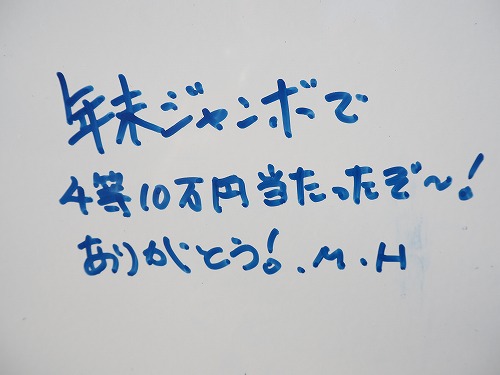 年末ジャンボで
4等10万円当たったぞ～!
ありがとう!.M.H